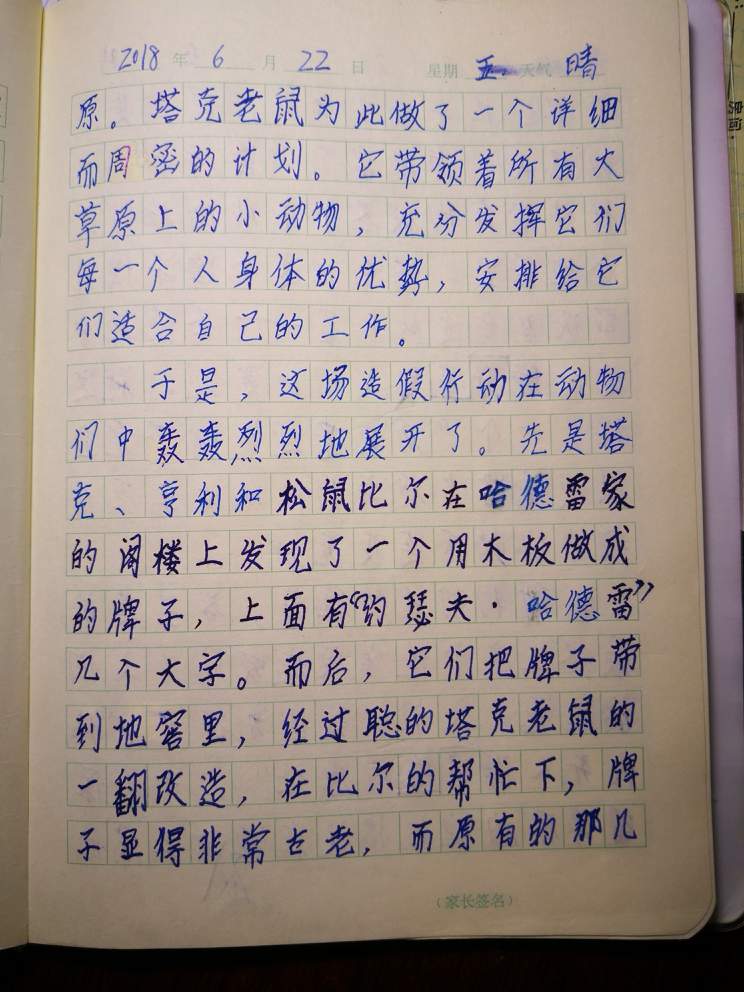 2018 年 6 月 22 日 星期 五 天气 晴
原。塔克老鼠为此做了一个详细
而周密的计划。它带领着所有大
草原上的小动物，充分发挥它们
每一个人身体的优势，安排给它
们适合自己的工作。
于是，这场造假行动在动物
们中轰轰烈烈地展开了。先是塔
克、亨利和松鼠比尔在哈德雷家
的阁楼上发现了一个用木板做成
的牌子，上面有“约瑟夫·哈德雷”
几个大字。而后，它们把牌子带
到地窖里，经过聪的塔克老鼠的
一翻改造，在比尔的帮忙下，牌
子显得非常古老，而原有的那几
（家长签名）